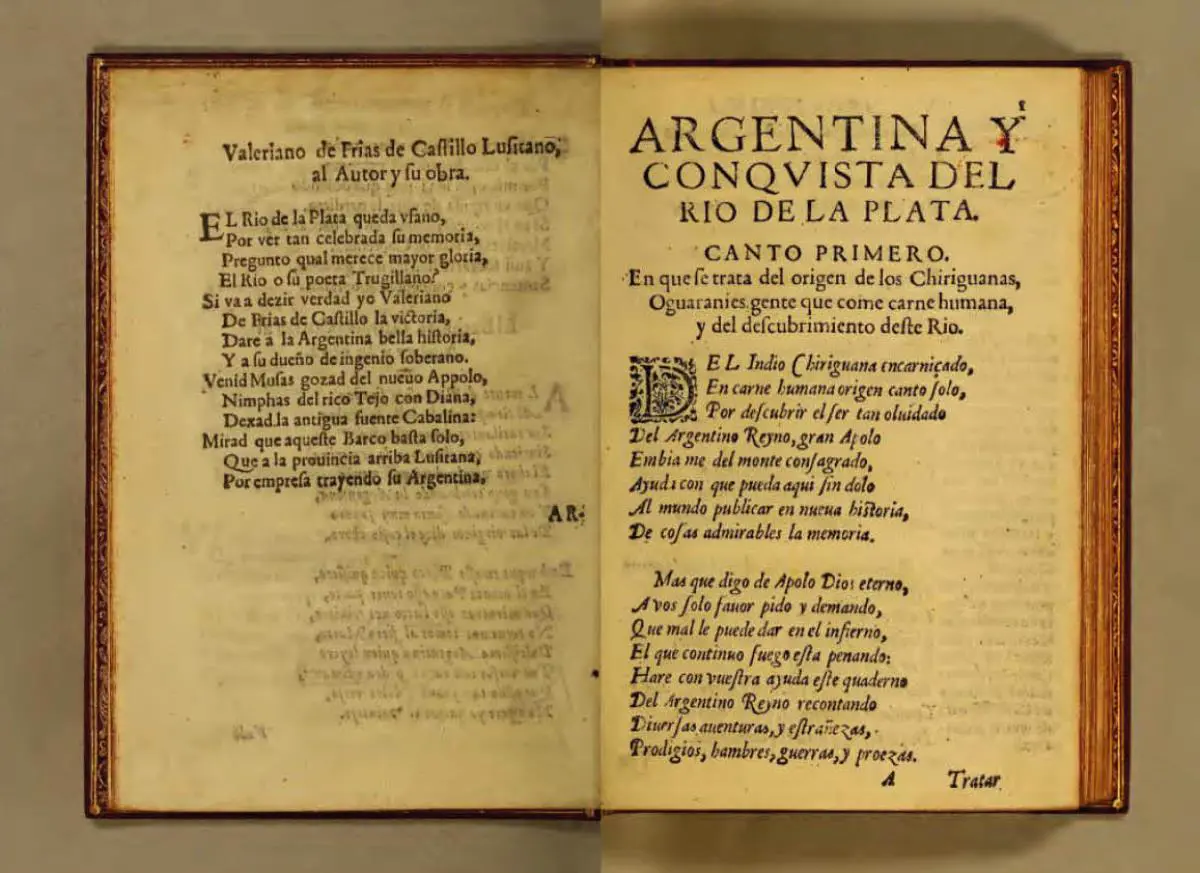 Valeriano de Frias de Castillo Lusitano,
al Autor y su obra.
EL Rio de la Plata queda vsano,
Por ver tan celebrada su memoria,
Pregunto qual merece mayor gloria,
El Rio o su poeta Trugillano?
Si va a dezir verdad yo Valeriano
De Frias de Castillo la victoria,
Dare a la Argentina bella historia,
Y a su dueño de ingenio soberano.
Venid Musas gozad del nueuo Appolo,
Nimphas del rico Tejo con Diana,
Dexad la antigua fuente Cabalina:
Mirad que aqueste Barco basta solo,
Que a la prouincia arriba Lusitana,
Por empresa trayendo su Argentina,
AR-
1
ARGENTINA Y
CONQVISTA DEL
RIO DE LA PLATA.
CANTO PRIMERO.
En que se trata del origen de los Chiriguanas,
Oguaranies, gente que come carne humana,
y del descubrimiento deste Rio.
DEL Indio Chiriguana encarniçado,
En carne humana origen canto solo,
Por descubrir el ser tan oluidado
Del Argentino Reyno, gran Apolo
Embia me del monte consagrado,
Ayuda con que pueda aqui sin dolo
Al mundo publicar en nueua historia,
De cosas admirables la memoria.
Mas que digo de Apolo Dios eterno,
A vos solo fauor pido y demando,
Que mal le puede dar en el infierno,
El que continuo fuego esta penando:
Hare con vuestra ayuda este quaderno
Del Argentino Reyno recontando
Diuersas auenturas, y estrañezas,
Prodigios, hambres, guerras, y proezas.
A Tratar